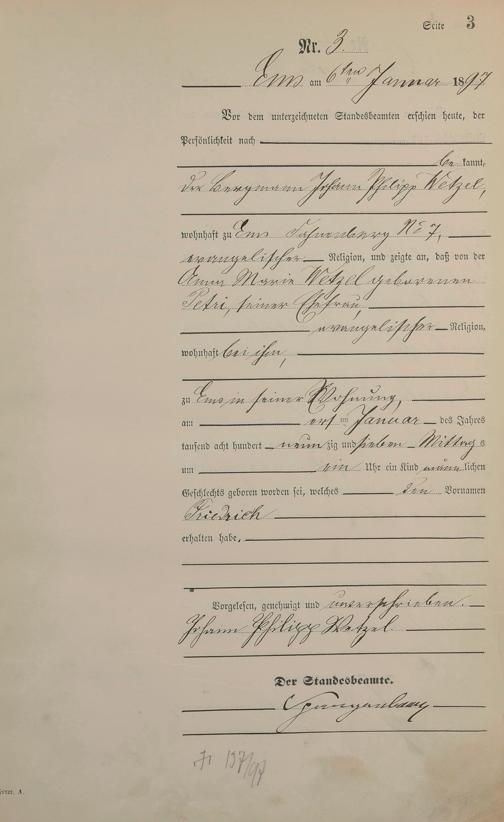 Seite 3
Nr. 3.
Ems am 6ten Januar 1897
Vor dem unterzeichneten Standesbeamten erschien heute, der
Persönlichkeit nach
be kannt,
der Bergmann Johann Philipp Wetzel,
wohnhaft zu Ems No 7,
evangelischer Religion, und zeigte an, daß von der
Anna Marie Wetzel geborenen
Petri, seiner Ehefrau,
evangelischer Religion,
wohnhaft bei ihm,
zu Ems in seiner Wohnung,
am ersten Januar des Jahres
tausend acht hundert neun zig und sieben Mittag s
um ein Uhr ein Kind männ lichen
Geschlechts geboren worden sei, welches den Vornamen
Friedrich
erhalten habe.
Vorgelesen, genehmigt und unterschrieben.
Johann Philipp Wetzel.
Der Standesbeamte.
Spangenberg
137/97